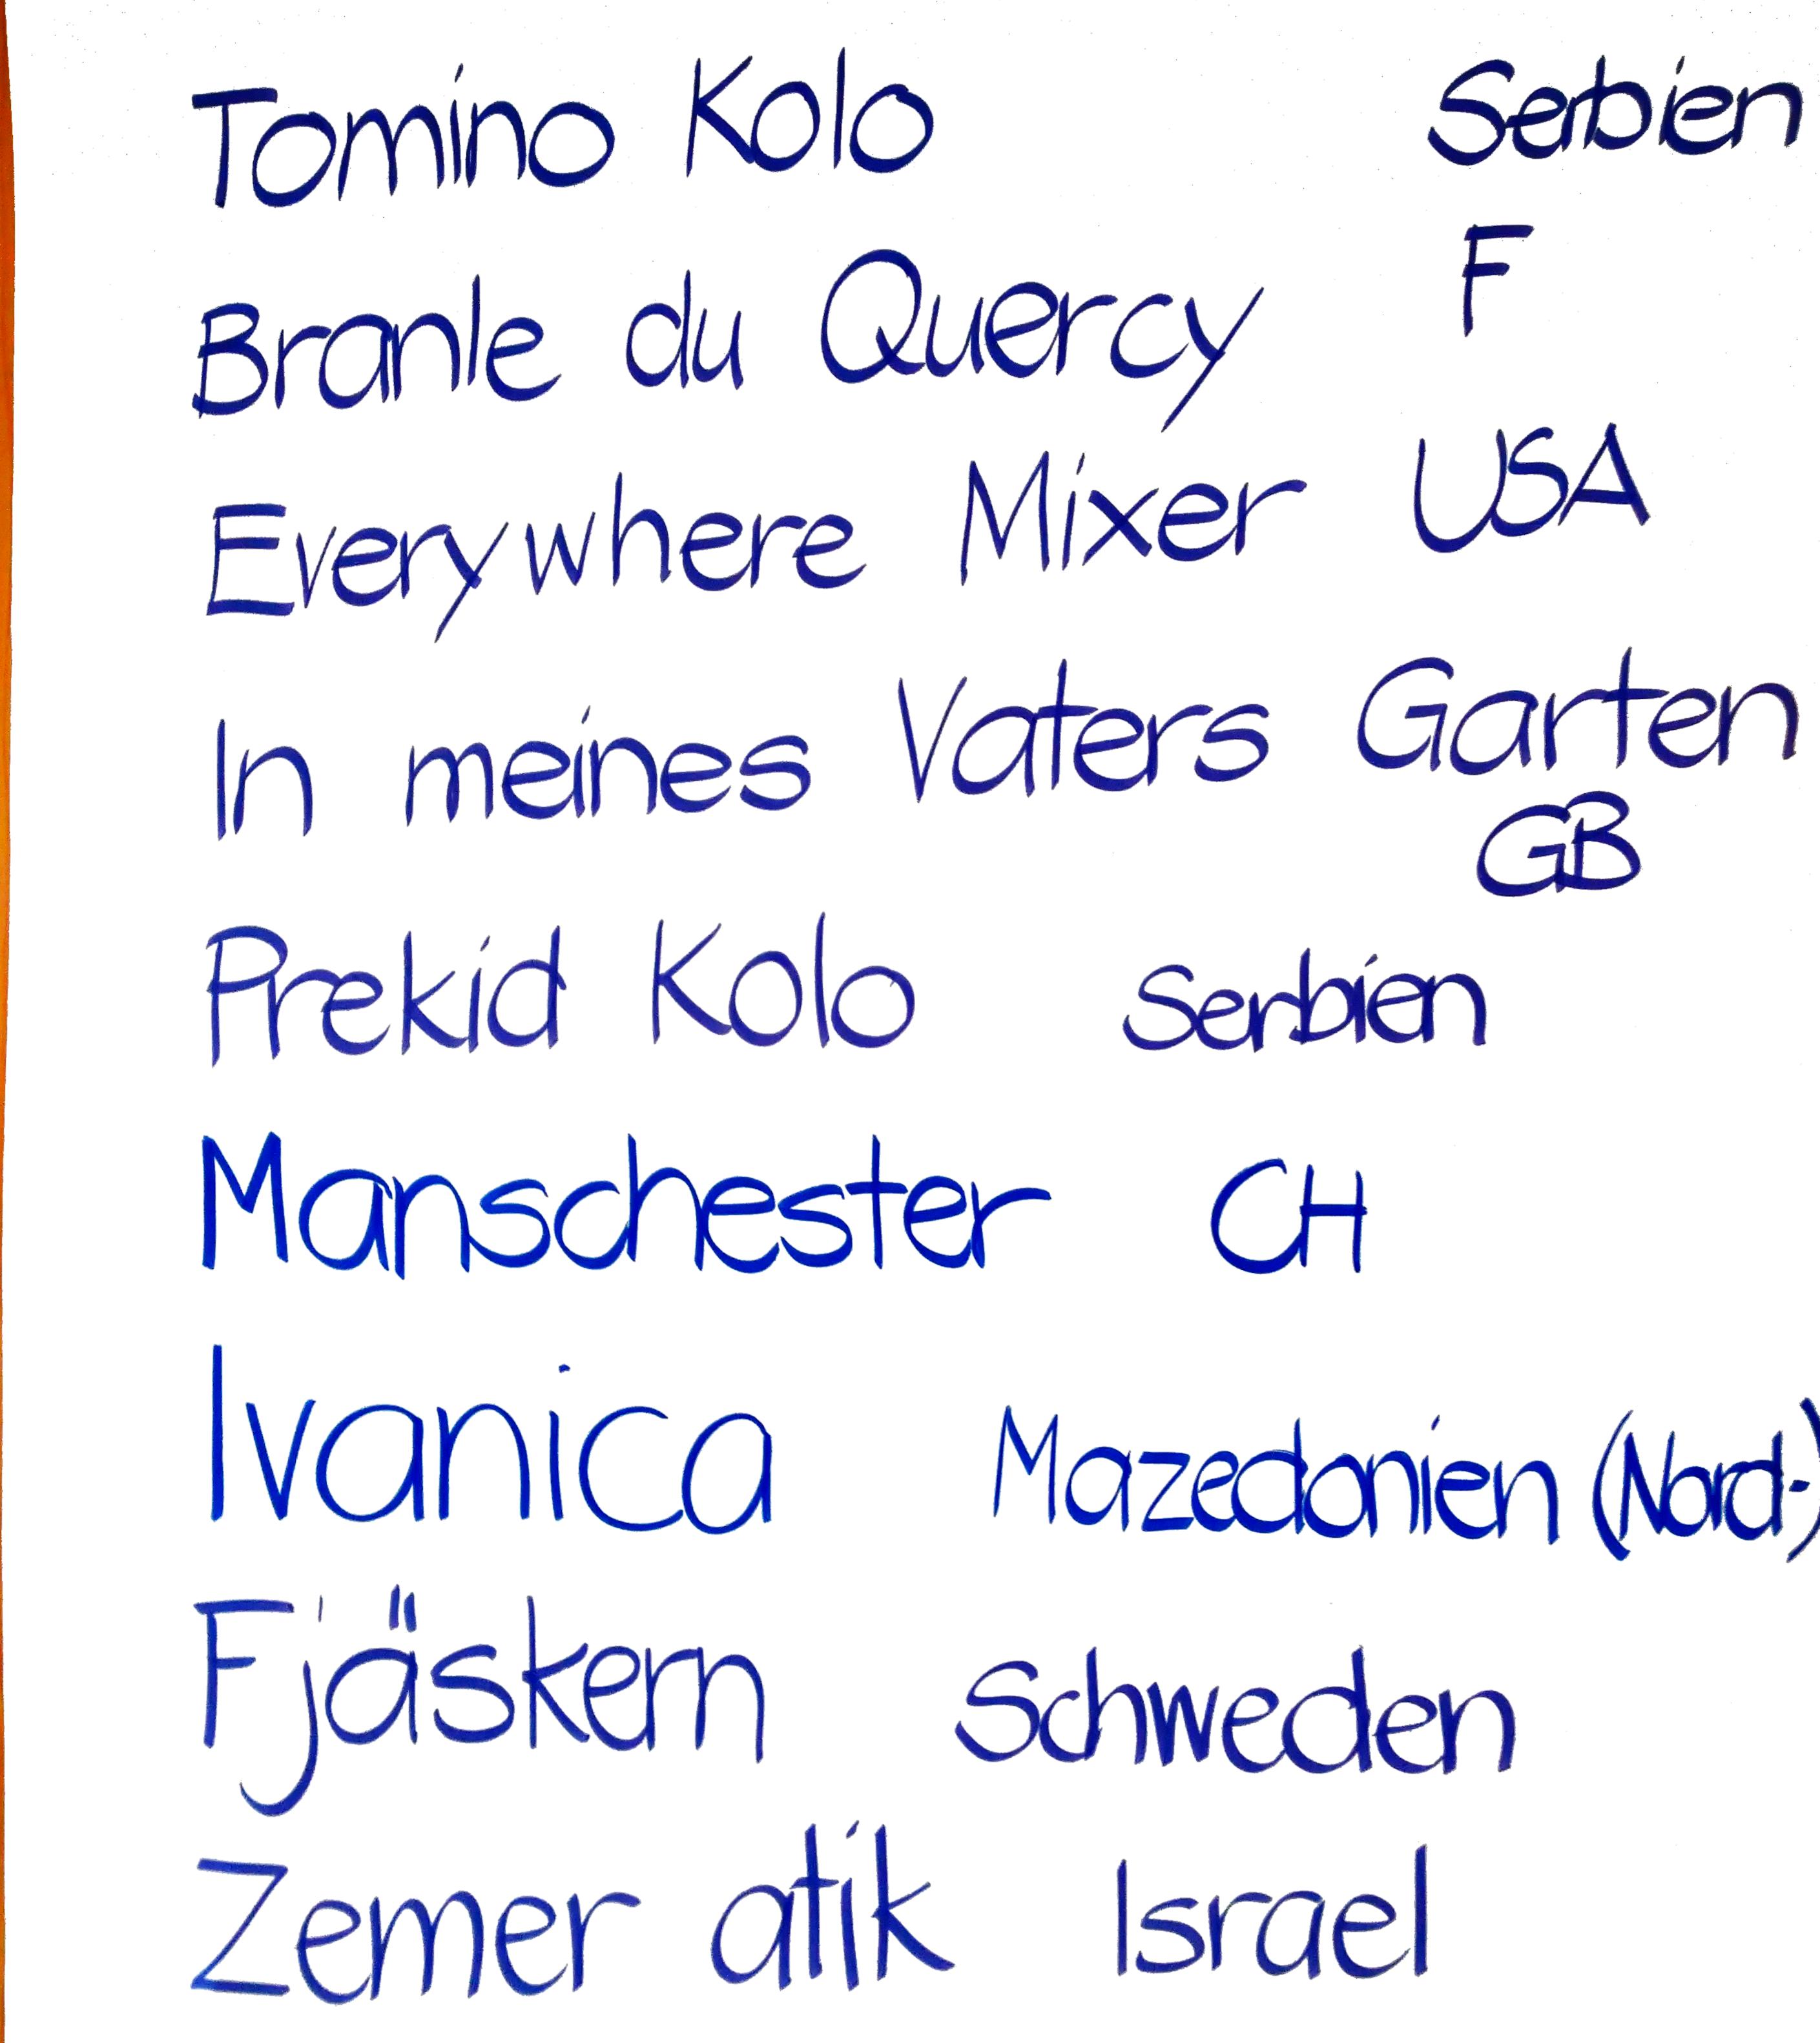 Tomino Kolo Serbien
Branle du Quercy F
Everywhere Mixer USA
In meines Vaters Garten
GB
Prekid Kolo Serbien
Manschester CH
Ivanica Mazedonien (Nord-)
Fjäskern Schweden
Zemer atik Israel